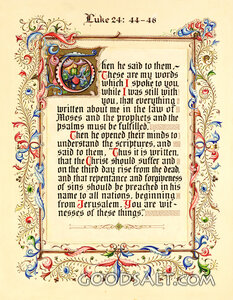 Luke 24: 44–48
Then he said to them,~
"These are my words
which I spoke to you,
while I was still with
you, that everything
written about me in the law of
Moses and the prophets and the
psalms must be fulfilled."
Then he opened their minds to
understand the scriptures, and
said to them, "Thus it is written,
that the Christ should suffer and
on the third day rise from the dead,
and that repentance and forgiveness
of sins should be preached in his
name to all nations, beginning
from Jerusalem. You are wit-
nesses of these things."
GOODSALT.COM